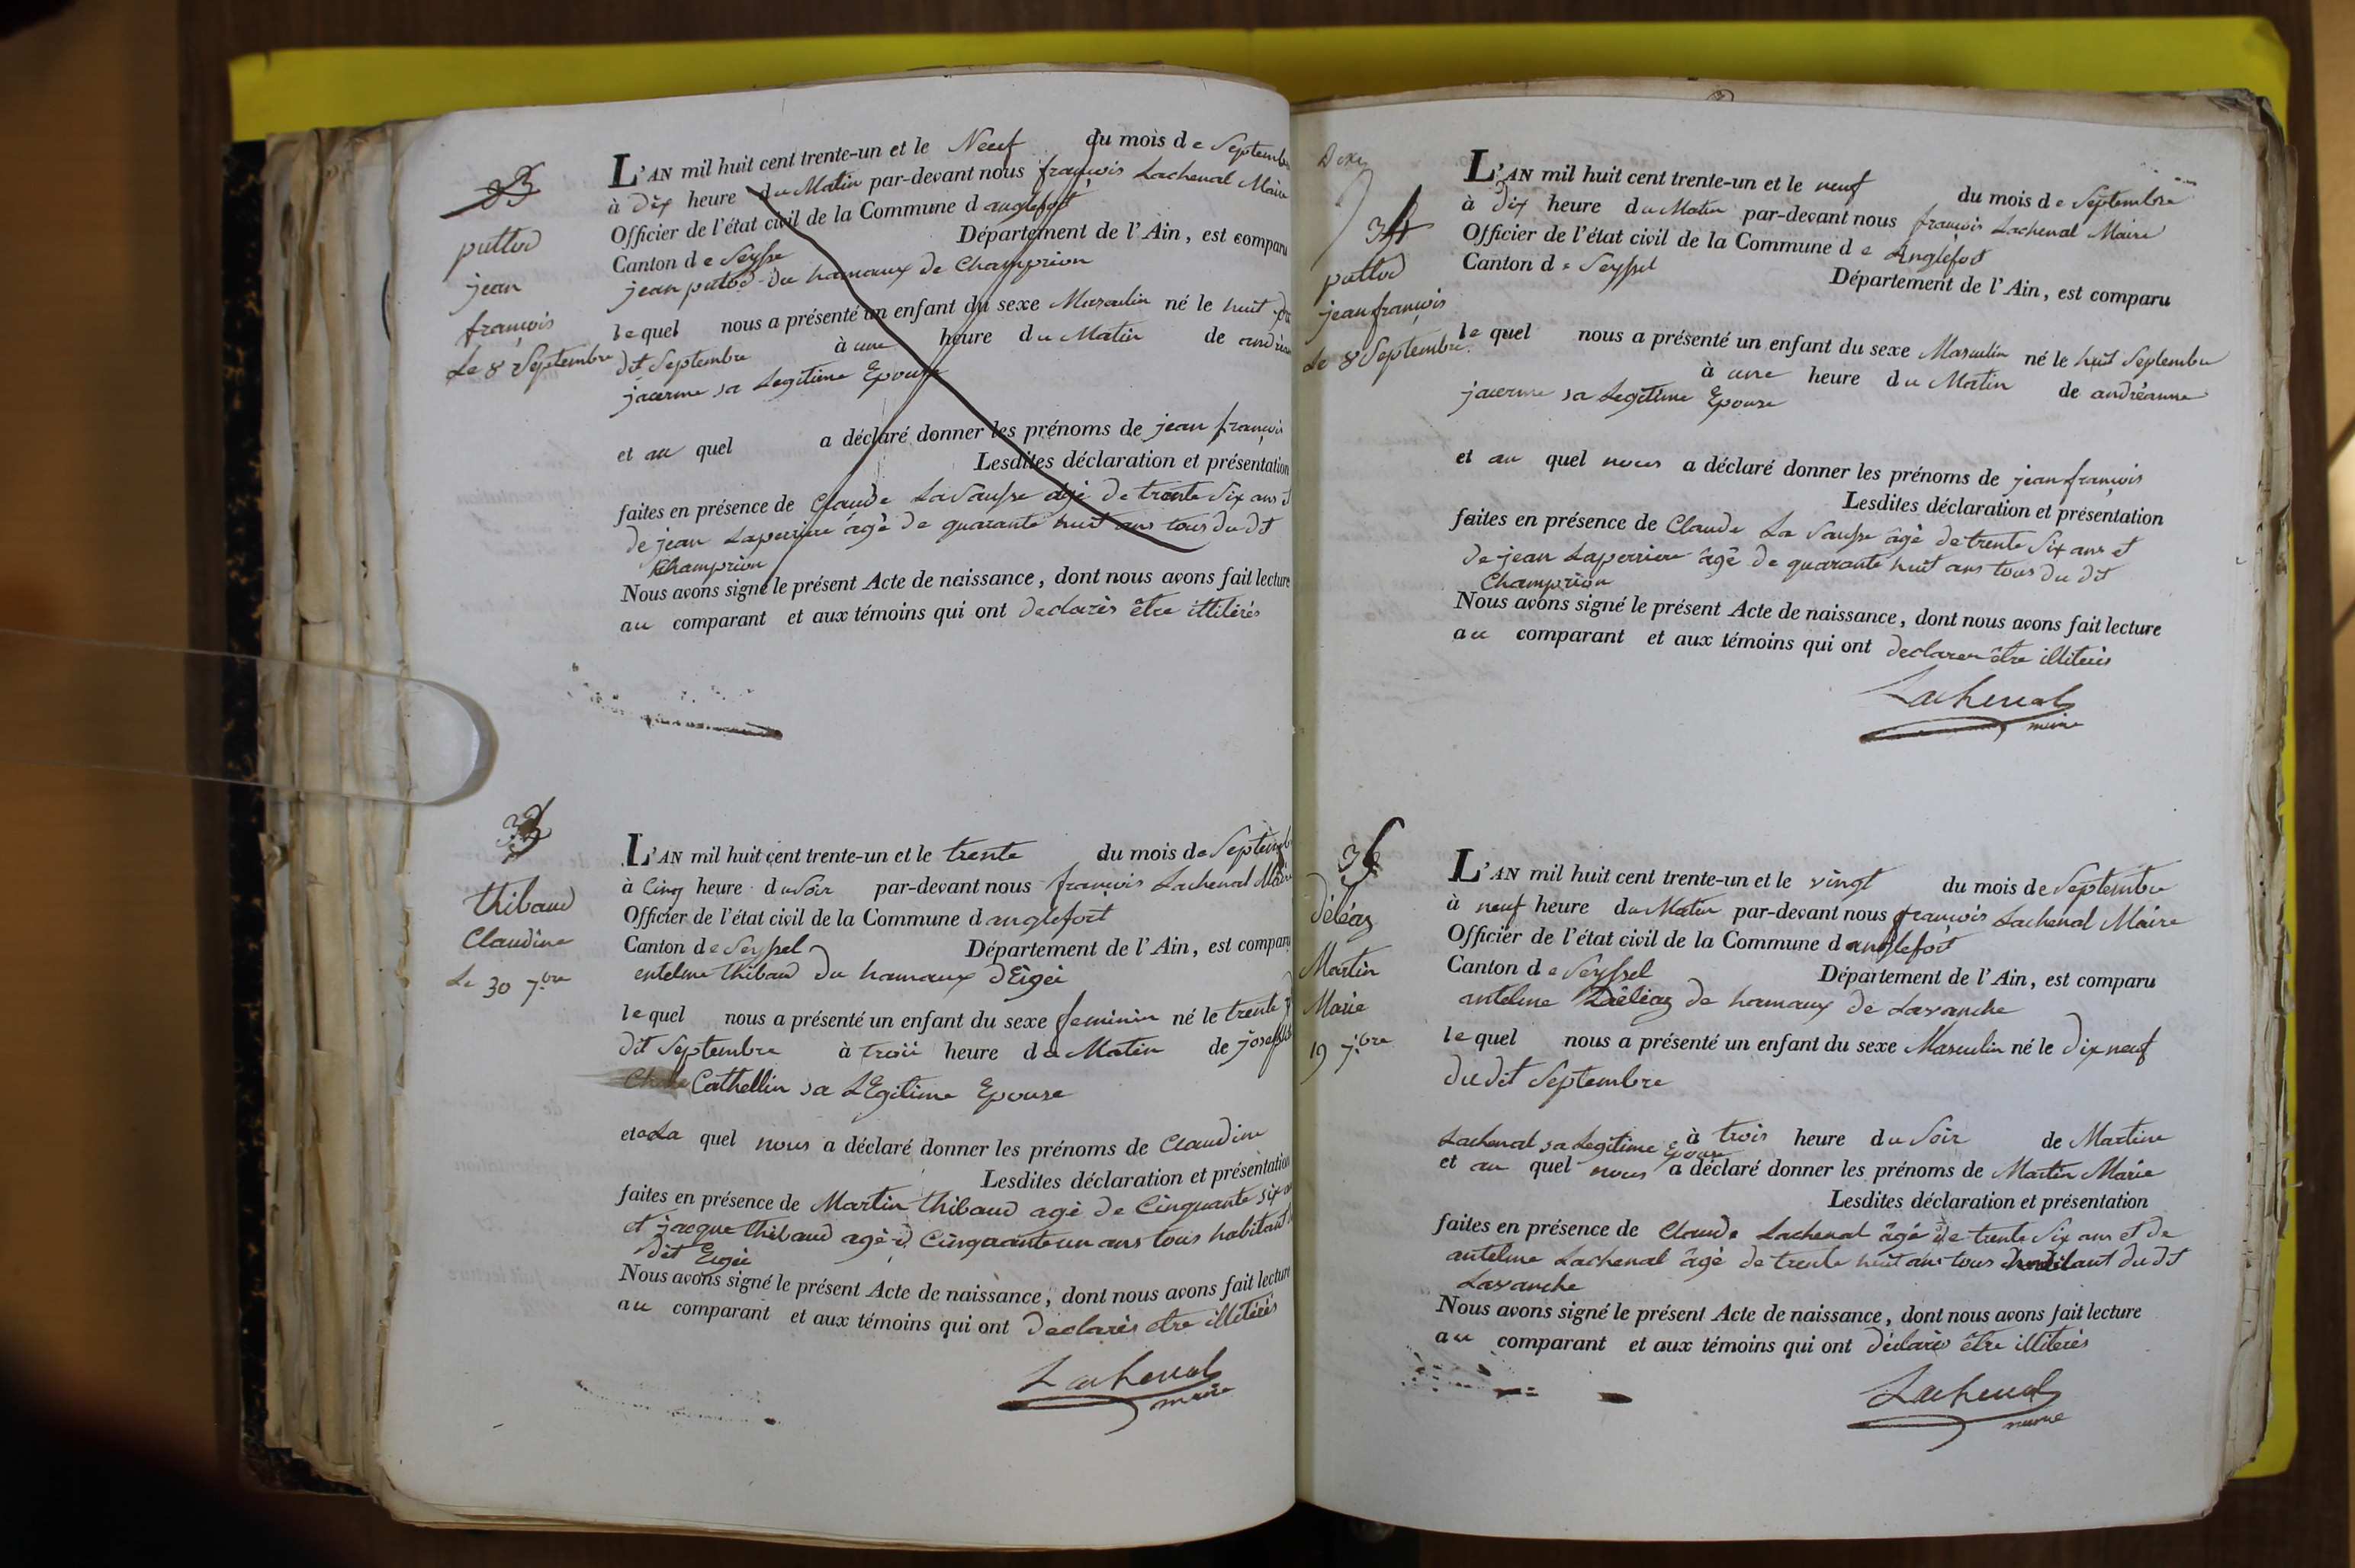 33
puttod
jean
françois
Le 8 Septembre
L'AN mil huit cent trente-un et le Neuf du mois de Septembre
à Dix heure du Matin par-devant nous françois Lachenal Maire
Officier de l'état civil de la Commune d anglefort
Canton de Seysse Département de l'Ain, est comparu
jean putod du hamaux de Champrion
lequel nous a présenté un enfant du sexe Masculin né le huit du
dit Septembre à une heure du Matin de andréanne
jacerme sa Legitime Epouse
et au quel a déclaré donner les prénoms de jean françois
Lesdites déclaration et présentation
faites en présence de Claude La Sausse agé de trente Six ans et
de jean Laperriere âgé de quarante huit ans tous du dit
Champrion
Nous avons signé le présent Acte de naissance, dont nous avons fait lecture
au comparant et aux témoins qui ont declarés être illiterés
thibaud
Claudine
Le 30 7.bre
L'AN mil huit cent trente-un et le trente du mois de Septembre
à Cinq heure du Soir par-devant nous françois Lachenal Maire
Officier de l'état civil de la Commune d anglefort
Canton de Seyssel Département de l'Ain, est comparu
entelme thibaud du hamaux d'Eigée
lequel nous a présenté un enfant du sexe feminin né le trente
dit Septembre à trois heure du Matin de
Cathellin sa LEgitime Epouse
et a La quel nous a déclaré donner les prénoms de Claudine
Lesdites déclaration et présentation
faites en présence de Martin thibaud agé de Cinquante six
et jacque thibaud agé d Cinquante un ans tous habitant
dit Eigée
Nous avons signé le présent Acte de naissance, dont nous avons fait lecture
au comparant et aux témoins qui ont declarés etre illiterés
Lachenal
maire
34
puttod
jean françois
Le 8 Septembre
L'AN mil huit cent trente-un et le neuf du mois de Septembre
à Dix heure du Matin par-devant nous françois Lachenal Maire
Officier de l'état civil de la Commune de Anglefort
Canton de Seyssel
Département de l'Ain, est comparu
lequel nous a présenté un enfant du sexe Masculin né le huit Septembre
à une heure du Matin de andréanne
jacerme sa Legitime Epouse
et au quel nous a déclaré donner les prénoms de jean françois
Lesdites déclaration et présentation
faites en présence de Claude La Sausse âgé de trente Six ans et
de jean Laperriere âgé de quarante huit ans tous du dit
Champrion
Nous avons signé le présent Acte de naissance, dont nous avons fait lecture
au comparant et aux témoins qui ont declarer être illiterés
Lachenal
maire
déléaz
Martin
Marie
19 7.bre
L'AN mil huit cent trente-un et le vingt du mois de Septembre
à neuf heure du Matin par-devant nous françois Lachenal Maire
Officier de l'état civil de la Commune d anglefort
Canton de Seyssel Département de l'Ain, est comparu
antelme Déliaz de hamaux de Lavanche
lequel nous a présenté un enfant du sexe Masculin né le Dix neuf
du dit Septembre
à trois heure du Soir de Martine
Lachenal sa Legitime Epouse
et au quel nous a déclaré donner les prénoms de Martin Marie
Lesdites déclaration et présentation
faites en présence de Claude Lachenal âgé de trente Six ans et de
antelme Lachenal âgé de trente huit ans tous habitant du dt
Lavanche
Nous avons signé le présent Acte de naissance, dont nous avons fait lecture
au comparant et aux témoins qui ont déclarés être illiterés
Lachenal
maire